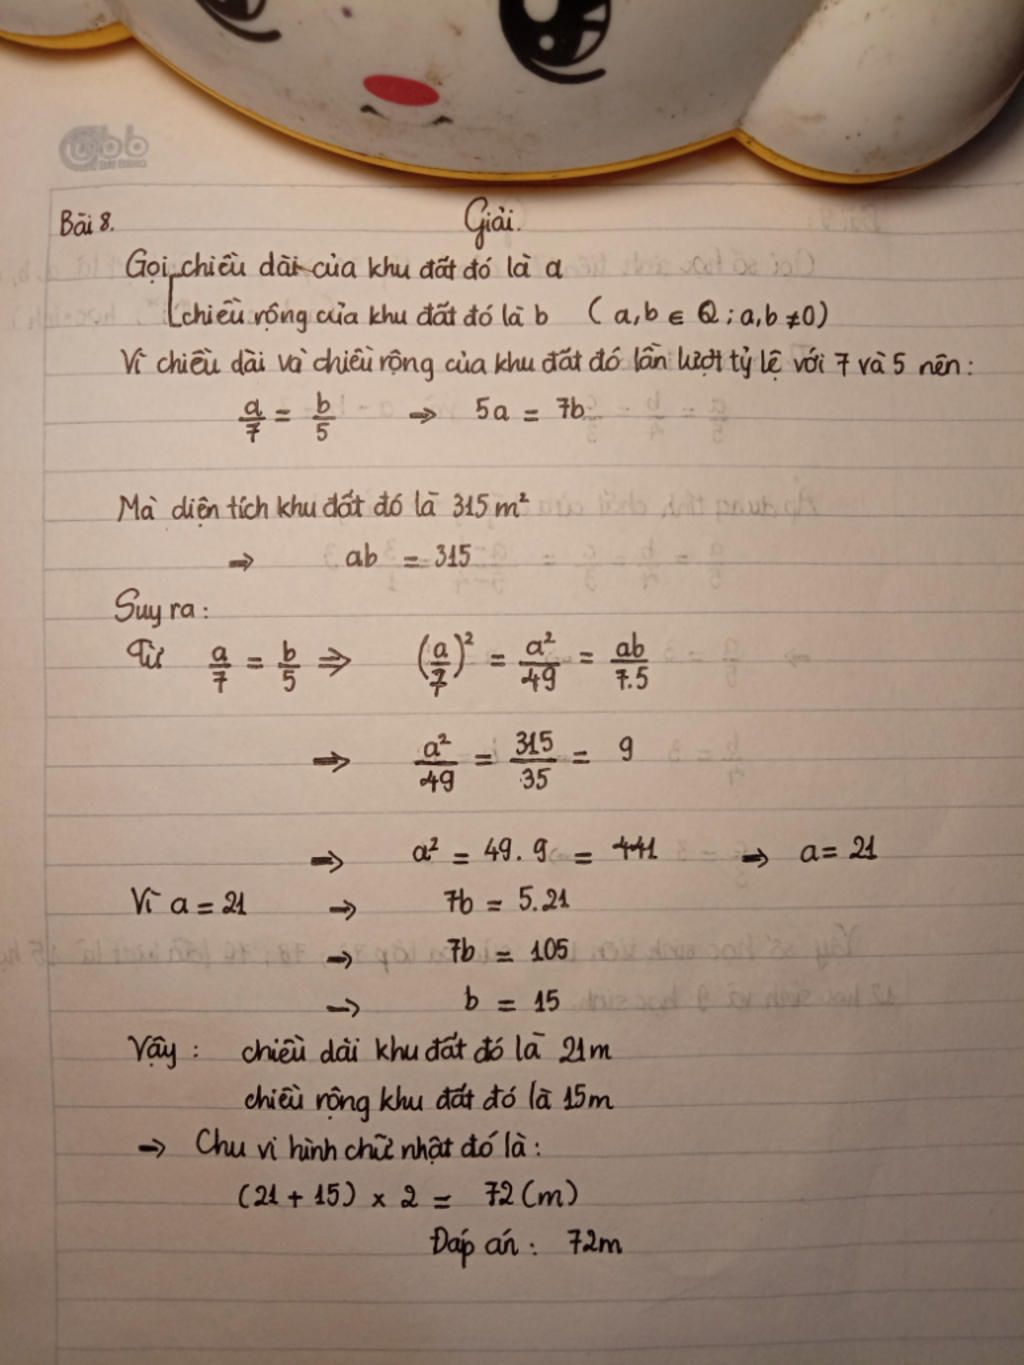 Bài 8. Giải.
Gọi chiều dài của khu đất đó là a
chiều rộng của khu đất đó là b (a,b ∈ Q; a,b ≠ 0)
Vì chiều dài và chiều rộng của khu đất đó lần lượt tỷ lệ với 7 và 5 nên:
a/7 = b/5 ⇒ 5a = 7b
Mà diện tích khu đất đó là 315 m²
⇒ ab = 315
Suy ra:
Từ a/7 = b/5 ⇒ (a/7)² = a²/49 = ab/7.5
⇒ a²/49 = 315/35 = 9
⇒ a² = 49.9 = 441 ⇒ a = 21
Vì a = 21 ⇒ 7b = 5.21
⇒ 7b = 105
⇒ b = 15
Vậy: chiều dài khu đất đó là 21m
chiều rộng khu đất đó là 15m
⇒ Chu vi hình chữ nhật đó là:
(21 + 15) × 2 = 72 (m)
Đáp án: 72m